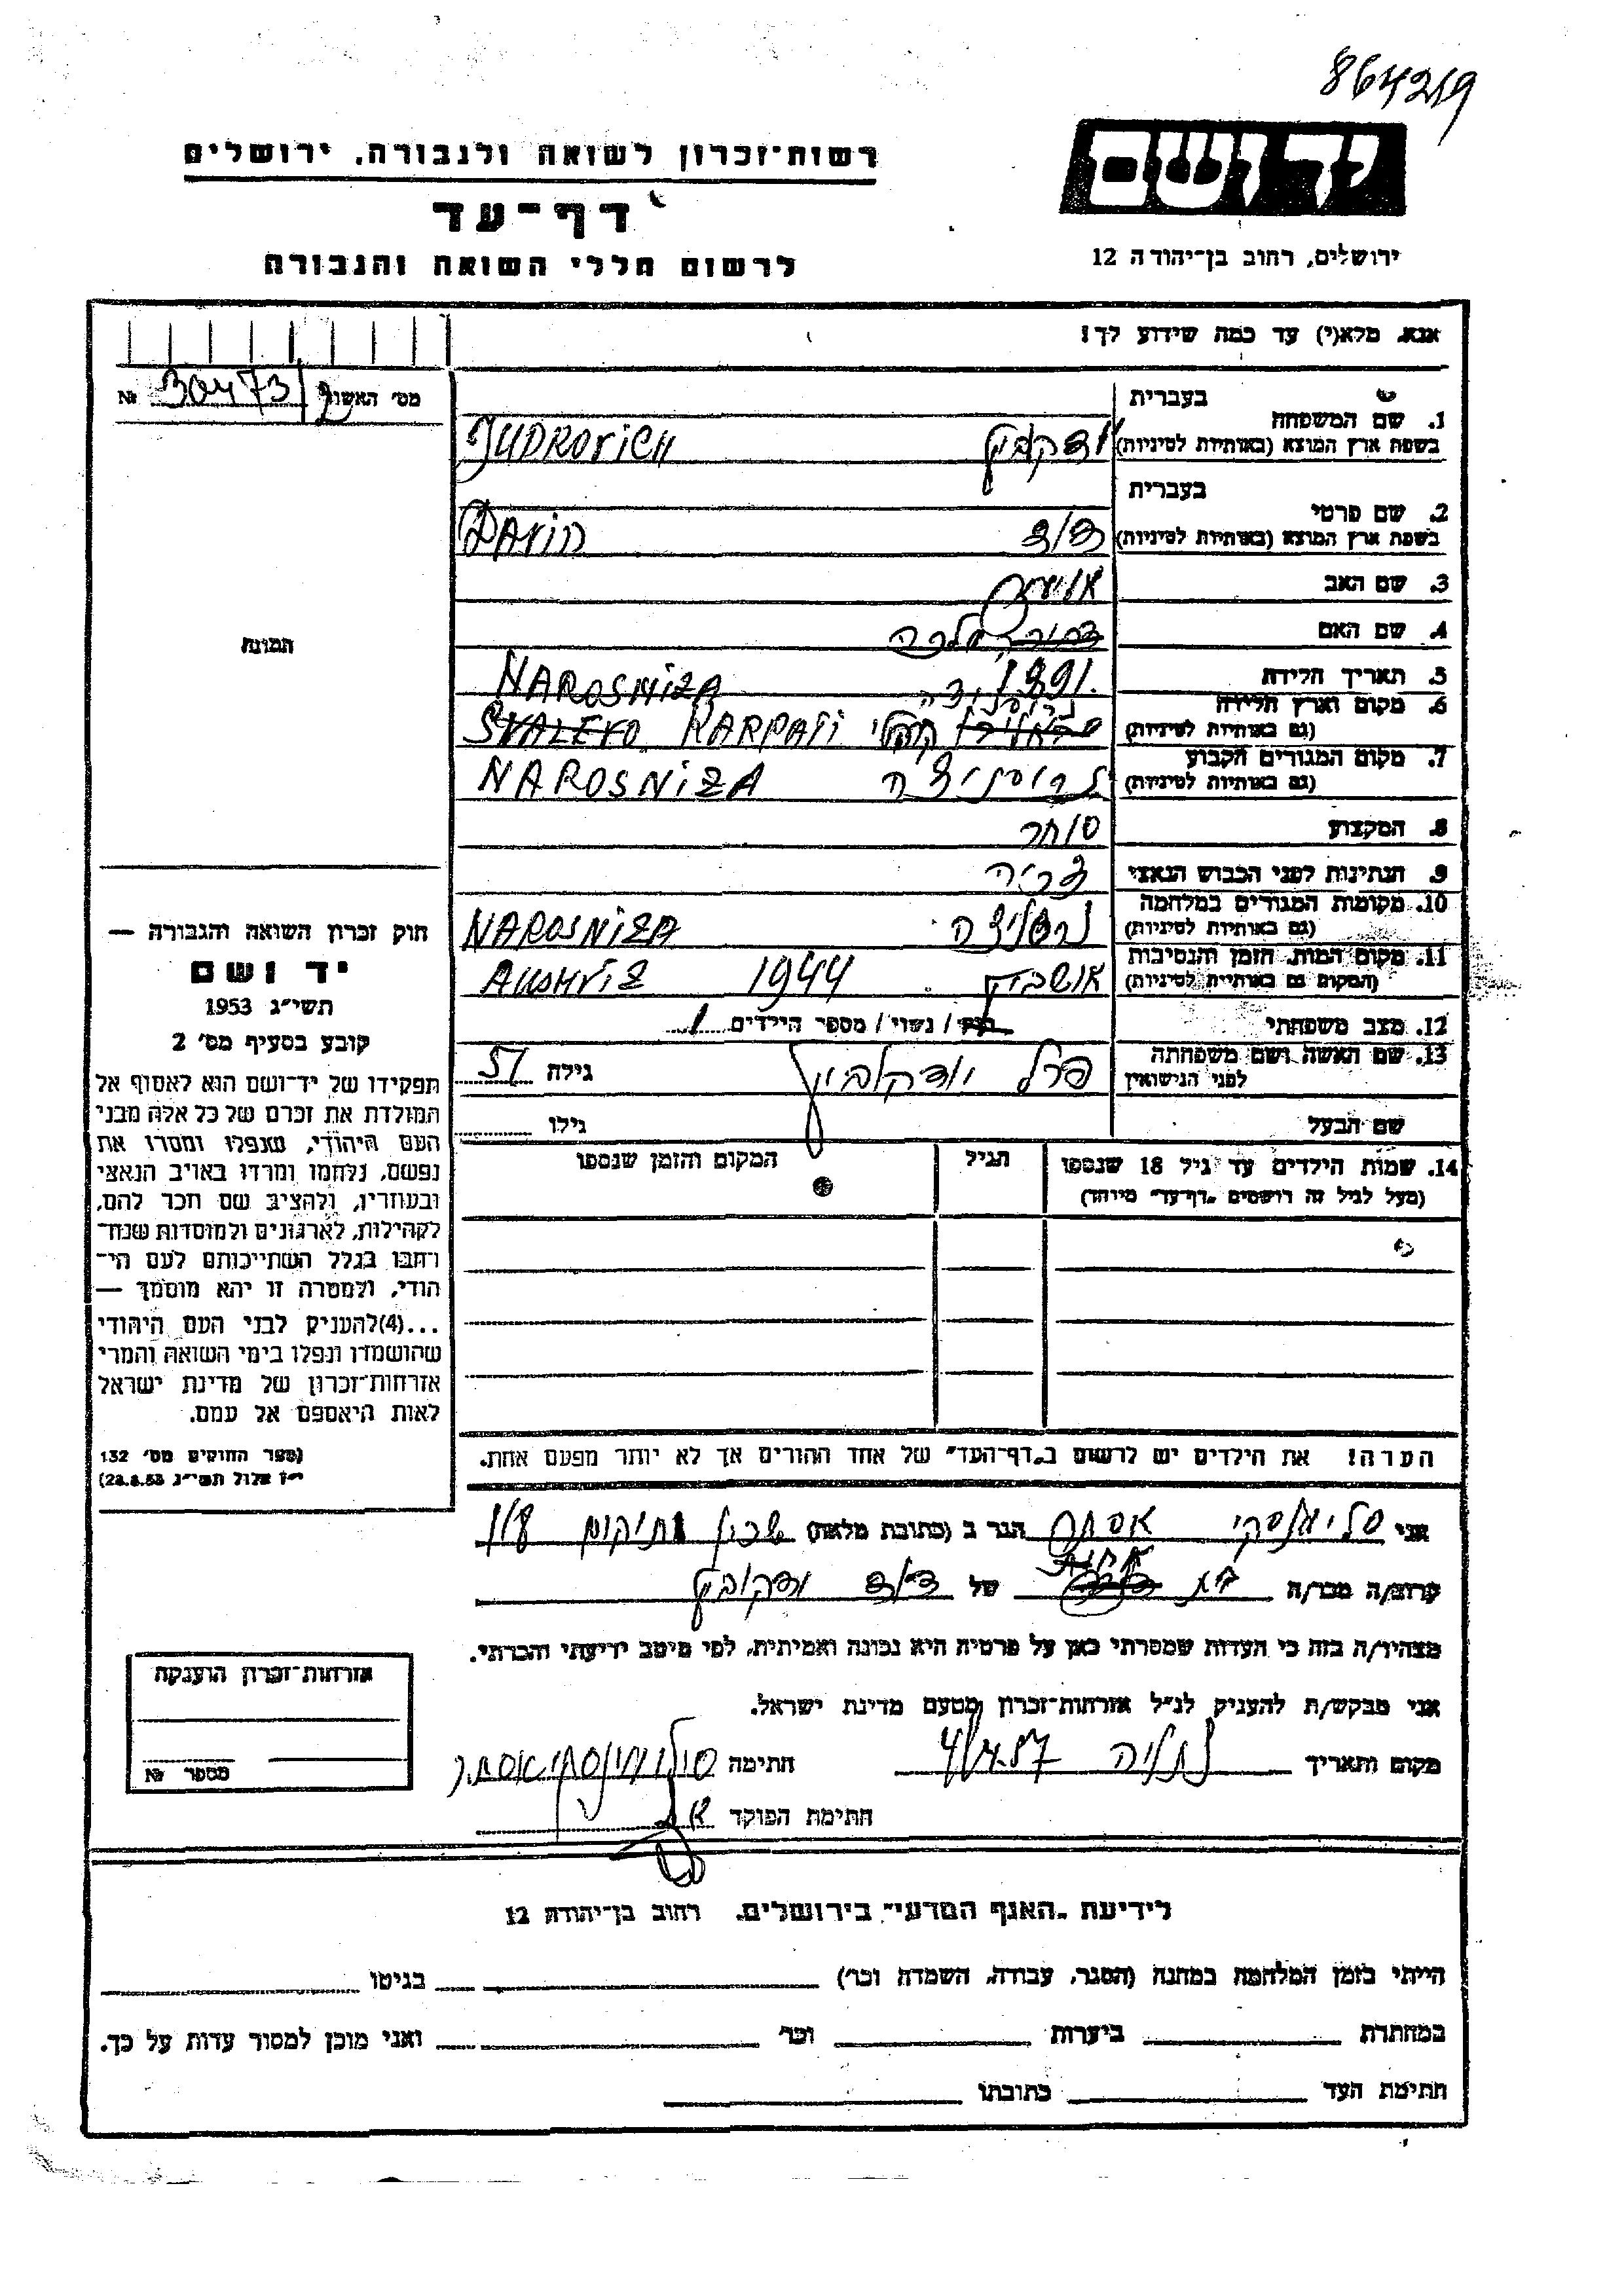 864219
יד ושם
ירושלים, רחוב בן־יהודה 12
רשות־זכרון לשואה ולגבורה, ירושלים
דף־עד
לרשום חללי השואה והגבורה
אנא, מלא(י) עד כמה שידוע לך!
מס׳ האשה 30473/2 №
תמונה
חוק זכרון השואה והגבורה —
יד ושם
תשי״ג 1953
קובע בסעיף מס׳ 2
תפקידו של יד־ושם הוא לאסוף אל
המולדת את זכרם של כל אלה מבני
העם היהודי, שנפלו ומסרו את
נפשם, נלחמו ומרדו באויב הנאצי
ובעוזריו, ולהציב שם וזכר להם,
לקהילות, לארגונים ולמוסדות שנח־
רבו בגלל השתייכותם לעם הי־
הודי, ולמטרה זו יהא מוסמך —
...(4)להעניק לבני העם היהודי
שהושמדו ונפלו בימי השואה והמרי
אזרחות־זכרון של מדינת ישראל
לאות היאספם אל עמם.
(ספר החוקים מס׳ 132
י״ז אלול תשי״ג 28.8.53)
בעברית
1. שם המשפחה
בשפת ארץ המוצא (באותיות לטיניות) JUDKOVICH
בעברית
2. שם פרטי
בשפת ארץ המוצא (באותיות לטיניות) דוד DAVID
3. שם האב
4. שם האם מלכה
5. תאריך הלידה 1891
6. מקום וארץ הלידה NAROSNIZA
(גם באותיות לטיניות) SVALEVO KARPATI
7. מקום המגורים הקבוע
(גם באותיות לטיניות) נרוסניצה NAROSNIZA
8. המקצוע סוחר
9. הנתינות לפני הכבוש הנאצי
10. מקומות המגורים במלחמה
(גם באותיות לטיניות) NAROSNIZA
11. מקום המות, הזמן והנסיבות
(המקום גם באותיות לטיניות) אושביץ 1944 AUSHVIZ
12. מצב משפחתי רוק / נשוי / מספר הילדים 1
13. שם האשה ושם משפחתה
לפני הנישואין פרל יודקוביץ גילה 51
שם הבעל גילו
14. שמות הילדים עד גיל 18 שנספו הגיל המקום והזמן שנספו
(מעל לגיל זה רושמים „דף־עד״ מיוחד)
הערה! את הילדים יש לרשום ב„דף־העד״ של אחד ההורים אך לא יותר מפעם אחת.
אני אסתר הגר ב (כתובת מלאה) שכון
קרוב/ה מכר/ה בת של דוד יודקוביץ
מצהיר/ה בזה כי העדות שמסרתי כאן על פרטיה היא נכונה ואמיתית, לפי מיטב ידיעתי והכרתי.
אני מבקש/ת להעניק לנ״ל אזרחות־זכרון מטעם מדינת ישראל.
מקום ותאריך נתניה 4/4.57 חתימה
חתימת הפוקד
אזרחות־זכרון הוענקה
מספר №
לידיעת „האגף המדעי״ בירושלים, רחוב בן־יהודה 12
הייתי בזמן המלחמה במחנה (הסגר, עבודה, השמדה וכר׳) בגיטו
במחתרת ביערות וכר׳ ואני מוכן למסור עדות על כך.
חתימת העד כתובתו